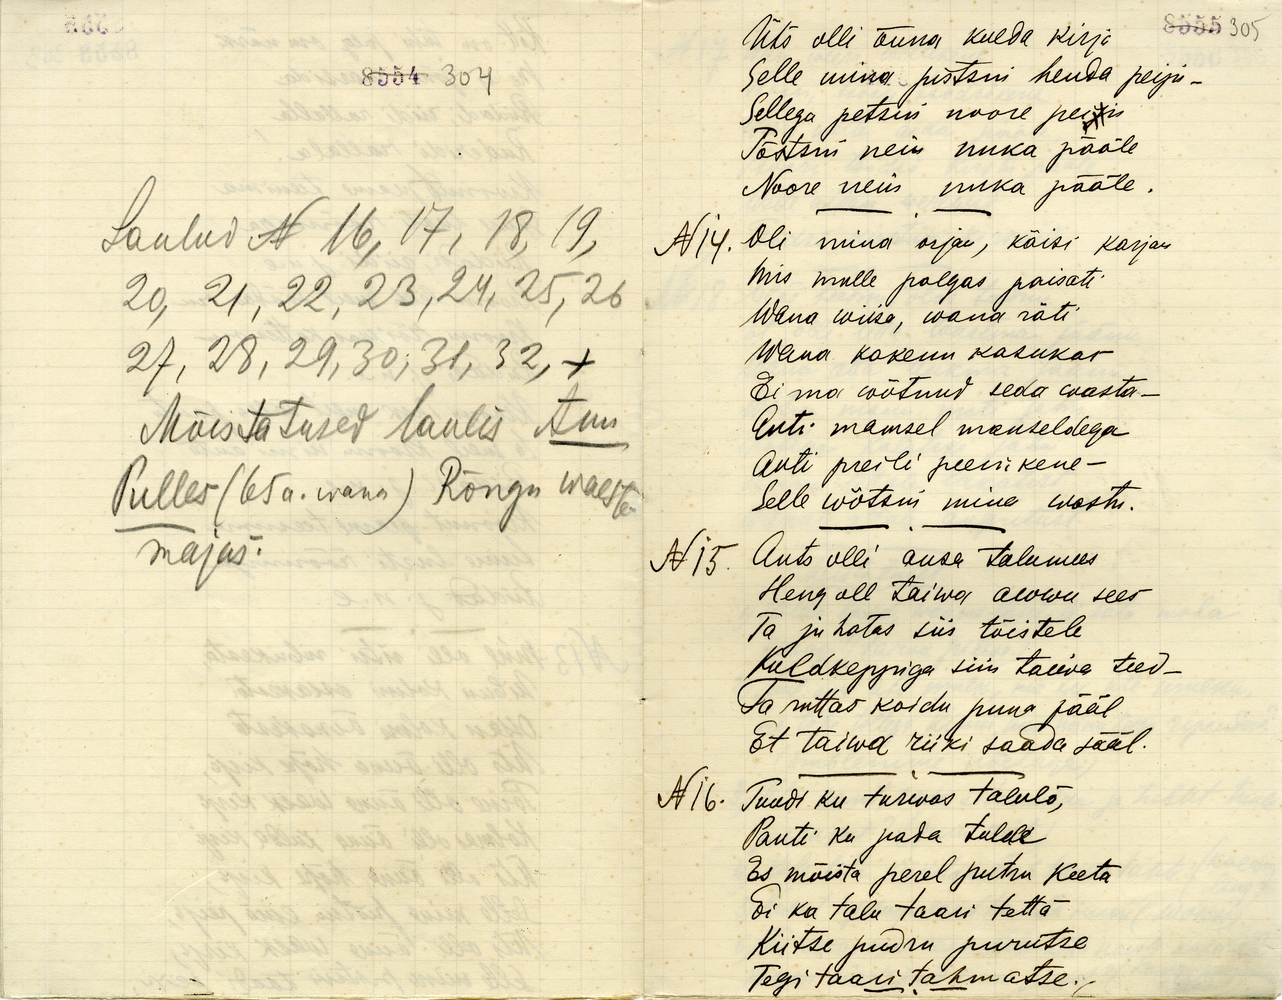 8554 304
Laulud № 16, 17, 18, 19,
20, 21, 22, 23, 24, 25, 26
27, 28, 29, 30, 31, 32, +
Mõistatused laulis Ann
Pulles (65 a. wana) Rõngu waeste-
majas.
8555 305
Üts olli õuna kulda kirja
Selle mina pistsin henda peiju-
Sellega petsin noore
Tõstsin nein nuka pääle
Noore nein nuka pääle.
№ 14. Oli mina orjan, käisi karjan
Mis mulle palgas paisati
Wana wiisa, wana räti
Wana kakenu kasukas
Ei ma wõtnud seda wasta-
Anti mamsel manseldega
Anti preili peenikene-
Selle wõtsin mina wastu.
№ 15. Ants olli ausa talumees
Heng oll taiwa aiwu sees
Ta juhatas siis tõistele
Kuldkeppiga siin taiwa teed-
Ta ruttas koidu puna pääl
Et taiwa riiki saada sääl.
№ 16. Tuudi ku turwas talulõ,
Panti ku pada tulele
Es mõista perel putru keeta
Ei ka talu taari tettä
Kiitse pudru purutse
Tegi taari tahmatse.